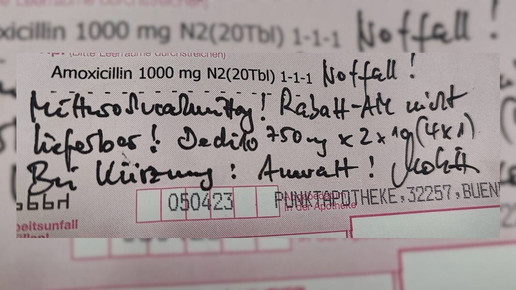 xicillin 1000 mg N2(20Tbl) 1-1-1 Notfall !
Amoxicillin 1000 mg N2(20Tbl) 1-1-1 Notfall !
! Rabatt-AM nicht
lieferbar ! 750mg x 2 x (4x1)
Bei Kürzung : Anwalt !
050423 PUNKTAPOTHEKE,32257,BUEN
in der Apotheke
eitsunfall